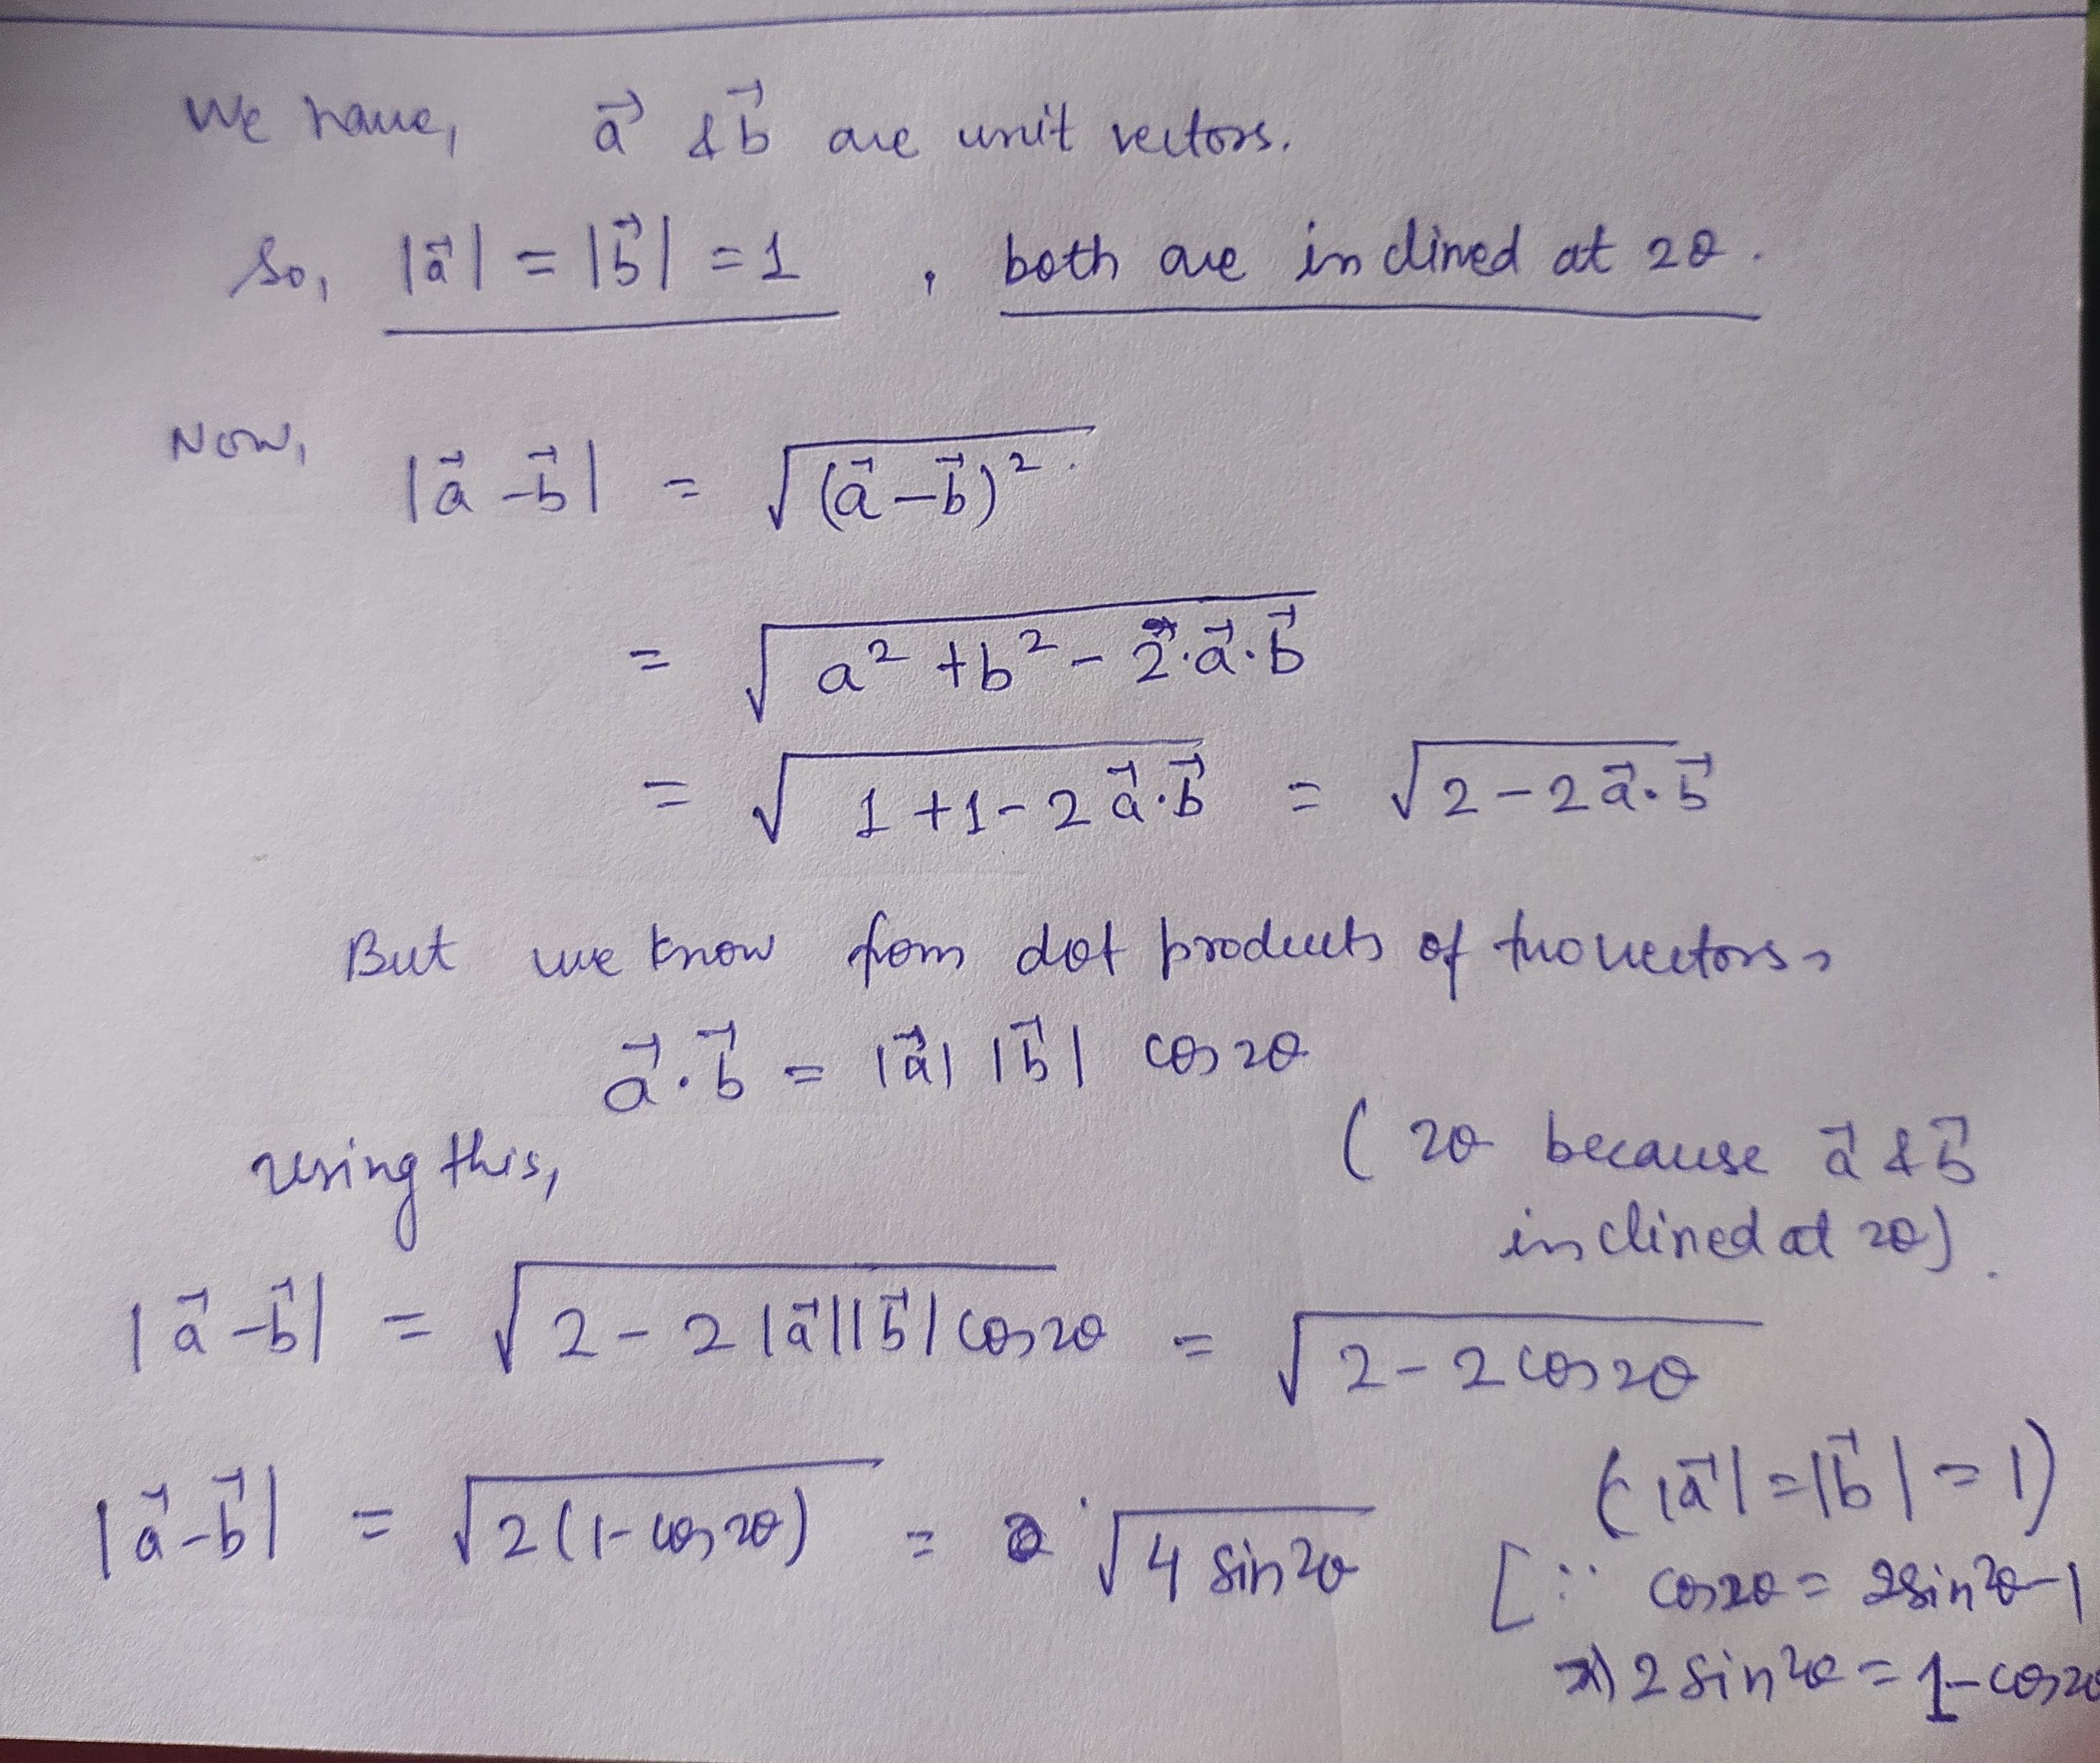 We have, a⃗ & b⃗ are unit vectors.
So, |a⃗| = |b⃗| = 1 , both are inclined at 2θ.
Now, |a⃗-b⃗| = √(a⃗-b⃗)²
= √a²+b²-2·a⃗·b⃗
= √1+1-2a⃗·b⃗ = √2-2a⃗·b⃗
But we know from dot products of two vectors,
a⃗·b⃗ = |a⃗| |b⃗| cos2θ
(2θ because a⃗ & b⃗
using this,
inclined at 2θ).
|a⃗-b⃗| = √2-2|a⃗||b⃗|cos2θ = √2-2cos2θ
(|a⃗|=|b⃗|=1)
|a⃗-b⃗| = √2(1-cos2θ) = √4sin²θ
[∵ cos2θ = 2sin²θ-1
⇒) 2sin²θ = 1-cos2θ